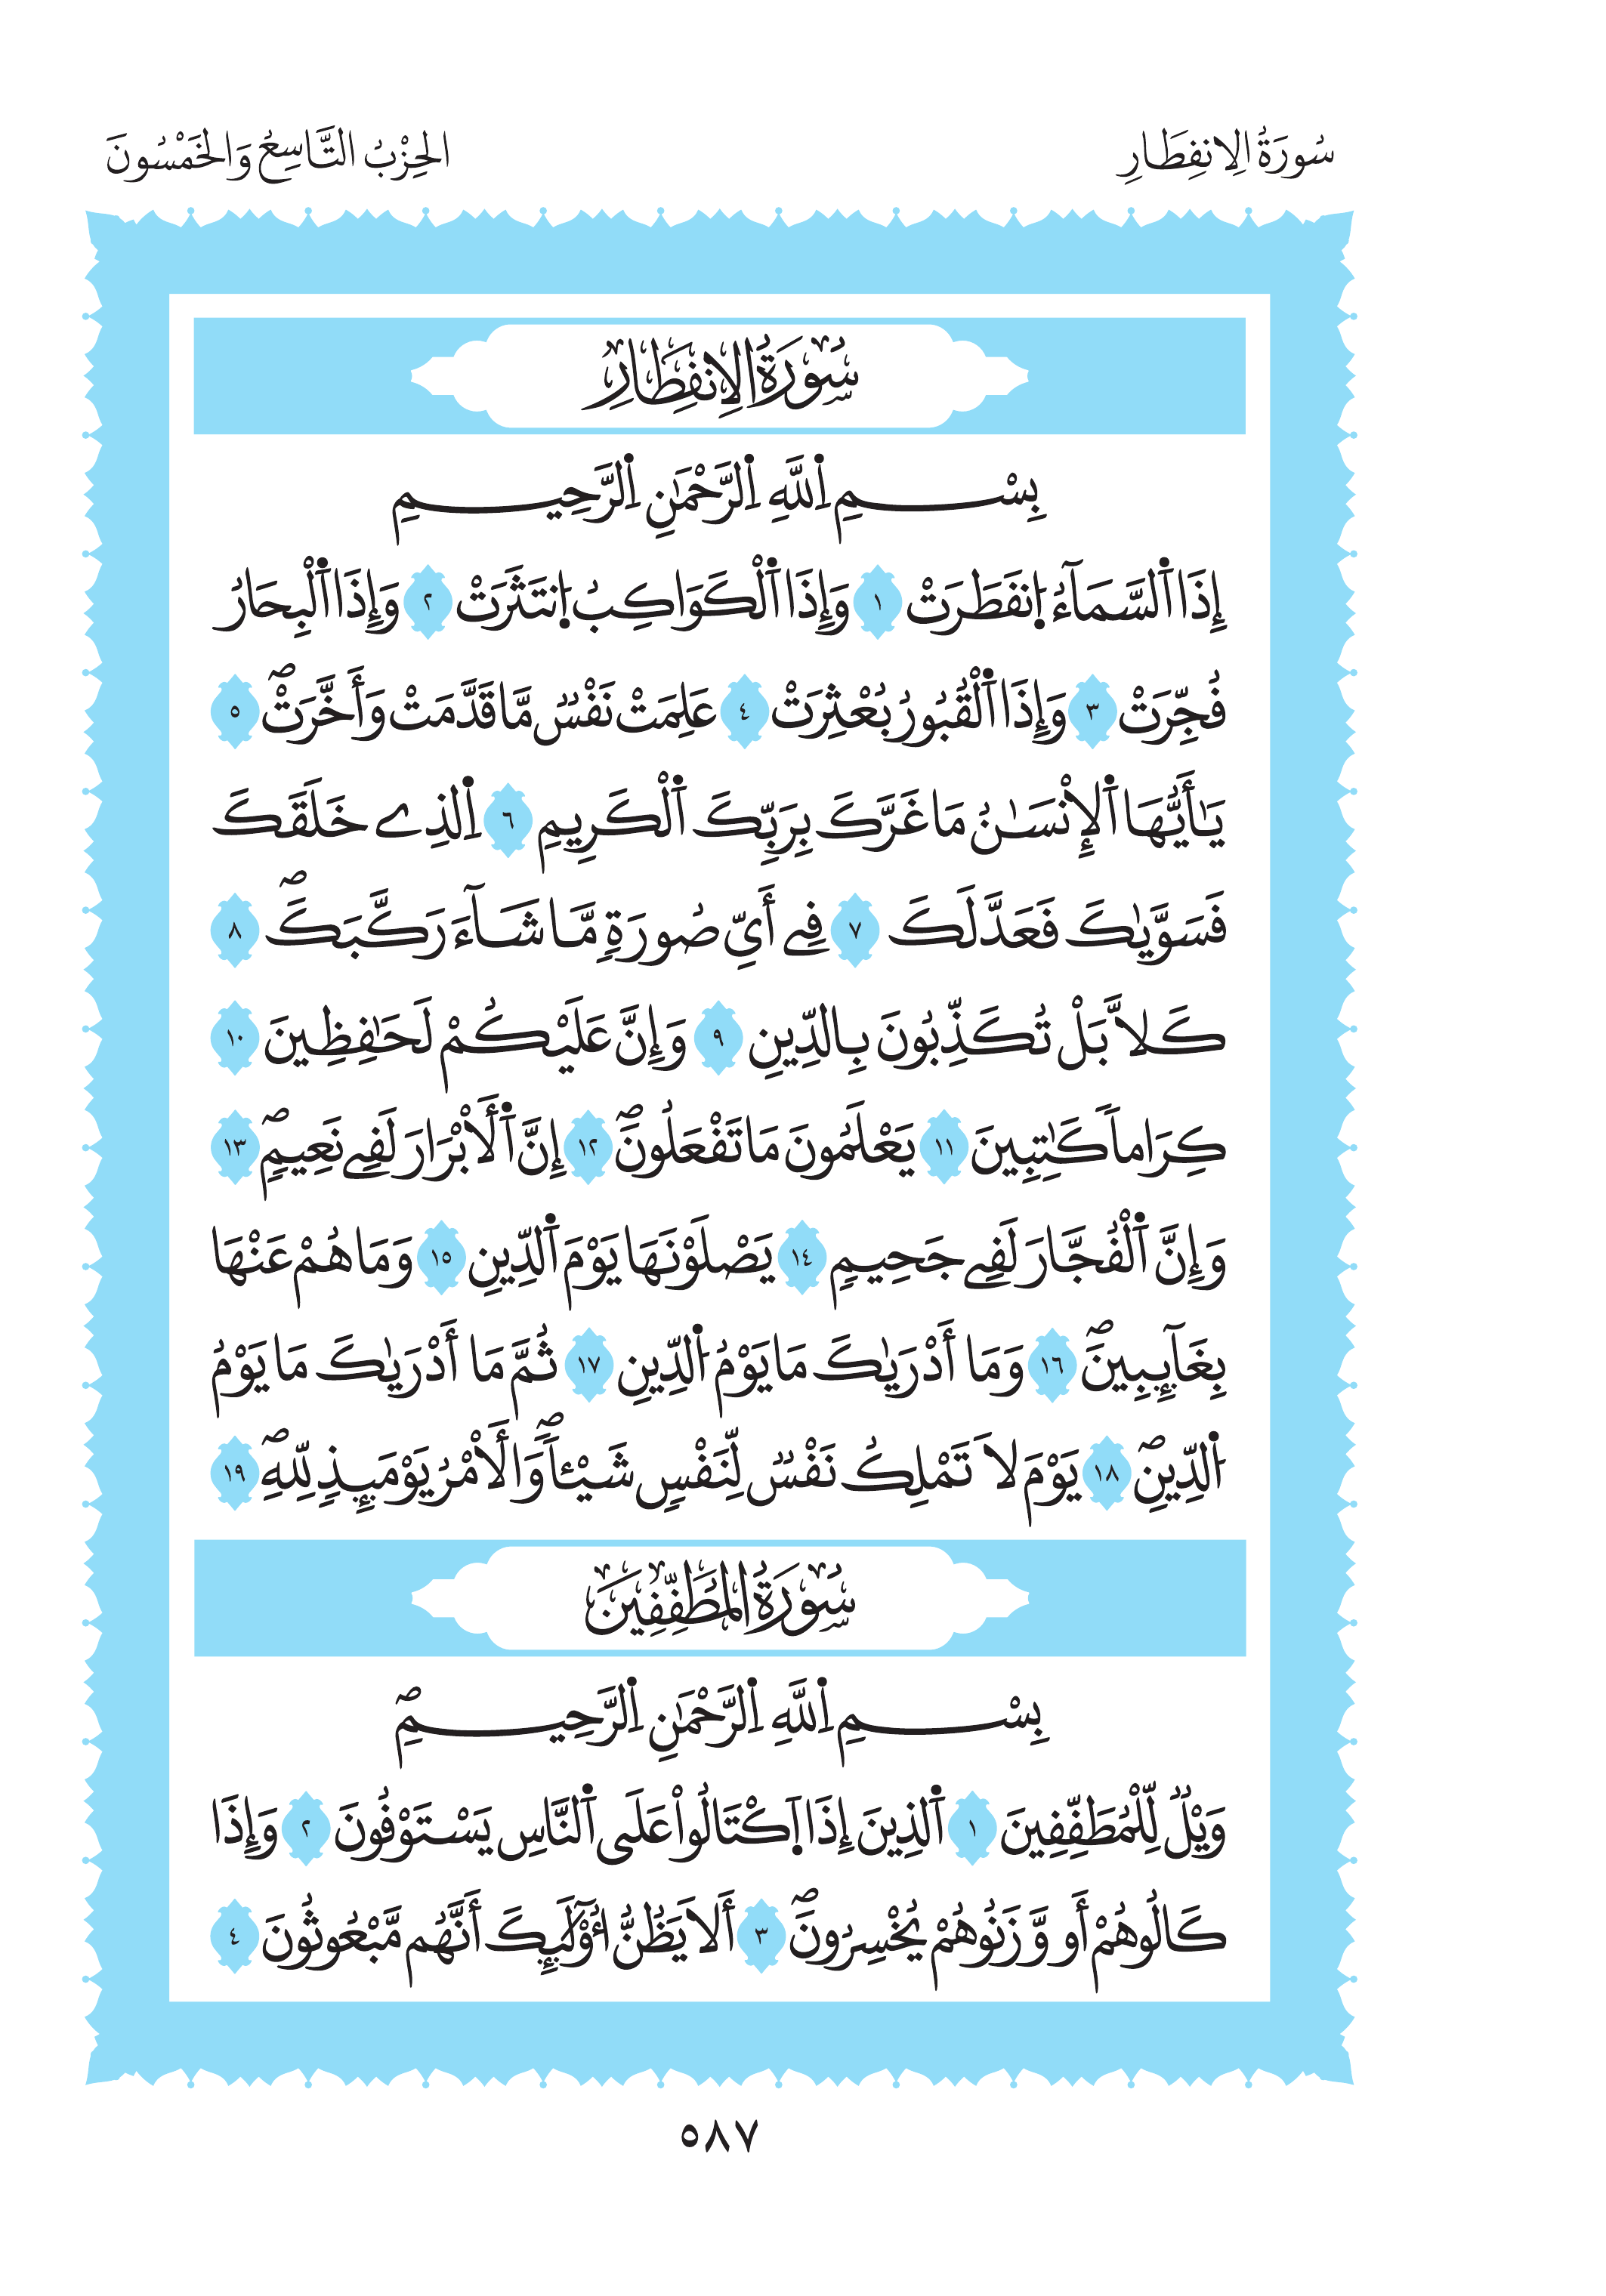 سُورَةُ الِانفِطَارِ
الحِزْبُ التَّاسِعُ وَالخَمْسُونَ
سُورَةُ الِانفِطَارِ
بِسْمِ اِ۬للَّهِ اِ۬لرَّحْمَٰنِ اِ۬لرَّحِيمِ
إِذَا اَ۬لسَّمَآءُ اُ۪نفَطَرَتْ ١ وَإِذَا اَ۬لْكَوَاكِبُ اُ۪نتَثَرَتْ ٢ وَإِذَا اَ۬لْبِحَارُ
فُجِّرَتْ ٣ وَإِذَا اَ۬لْقُبُورُ بُعْثِرَتْ ٤ عَلِمَتْ نَفْسٞ مَّا قَدَّمَتْ وَأَخَّرَتْۖ ٥
يَٰأَيُّهَا اَ۬لْإِنْسَٰنُ مَا غَرَّكَ بِرَبِّكَ اَ۬لْكَرِيمِ ٦ اِ۬لذِے خَلَقَكَ
فَسَوَّيٰكَ فَعَدَّلَكَ ٧ فِے أَيِّ صُورَةٖ مَّا شَآءَ رَكَّبَكَۖ ٨
كَلاَّ بَلْ تُكَذِّبُونَ بِالدِّينِ ٩ وَإِنَّ عَلَيْكُمْ لَحَٰفِظِينَ ١٠
كِرَاماٗ كَٰتِبِينَ ١١ يَعْلَمُونَ مَا تَفْعَلُونَۖ ١٢ إِنَّ اَ۬لَأبْرَارَ لَفِے نَعِيمٖۖ ١٣
وَإِنَّ اَ۬لْفُجَّارَ لَفِے جَحِيمٖ ١٤ يَصْلَوْنَهَا يَوْمَ اَ۬لدِّينِ ١٥ وَمَا هُمْ عَنْهَا
بِغَآئِبِينَۖ ١٦ وَمَا أَدْرَيٰكَ مَا يَوْمُ اُ۬لدِّينِ ١٧ ثُمَّ مَا أَدْرَيٰكَ مَا يَوْمُ
اُ۬لدِّينِۖ ١٨ يَوْمَ لاَ تَمْلِكُ نَفْسٞ لِّنَفْسٖ شَيْـٔاٗۖ وَالَأمْرُ يَوْمَئِذٖ لِّلهِۖ ١٩
سُورَةُ المُطَفِّفِينَ
بِسْمِ اِ۬للَّهِ اِ۬لرَّحْمَٰنِ اِ۬لرَّحِيمِۖ
وَيْلٞ لِّلْمُطَفِّفِينَ ١ اَ۬لذِينَ إِذَا اَ۪كْتَالُواْ عَلَي اَ۬لنَّاسِ يَسْتَوْفُونَ ٢ وَإِذَا
كَالُوهُمْ أَو وَّزَنُوهُمْ يُخْسِرُونَۖ ٣ أَلاَ يَظُنُّ أُوْلَٰٓئِكَ أَنَّهُم مَّبْعُوثُونَ ٤
٥٨٧